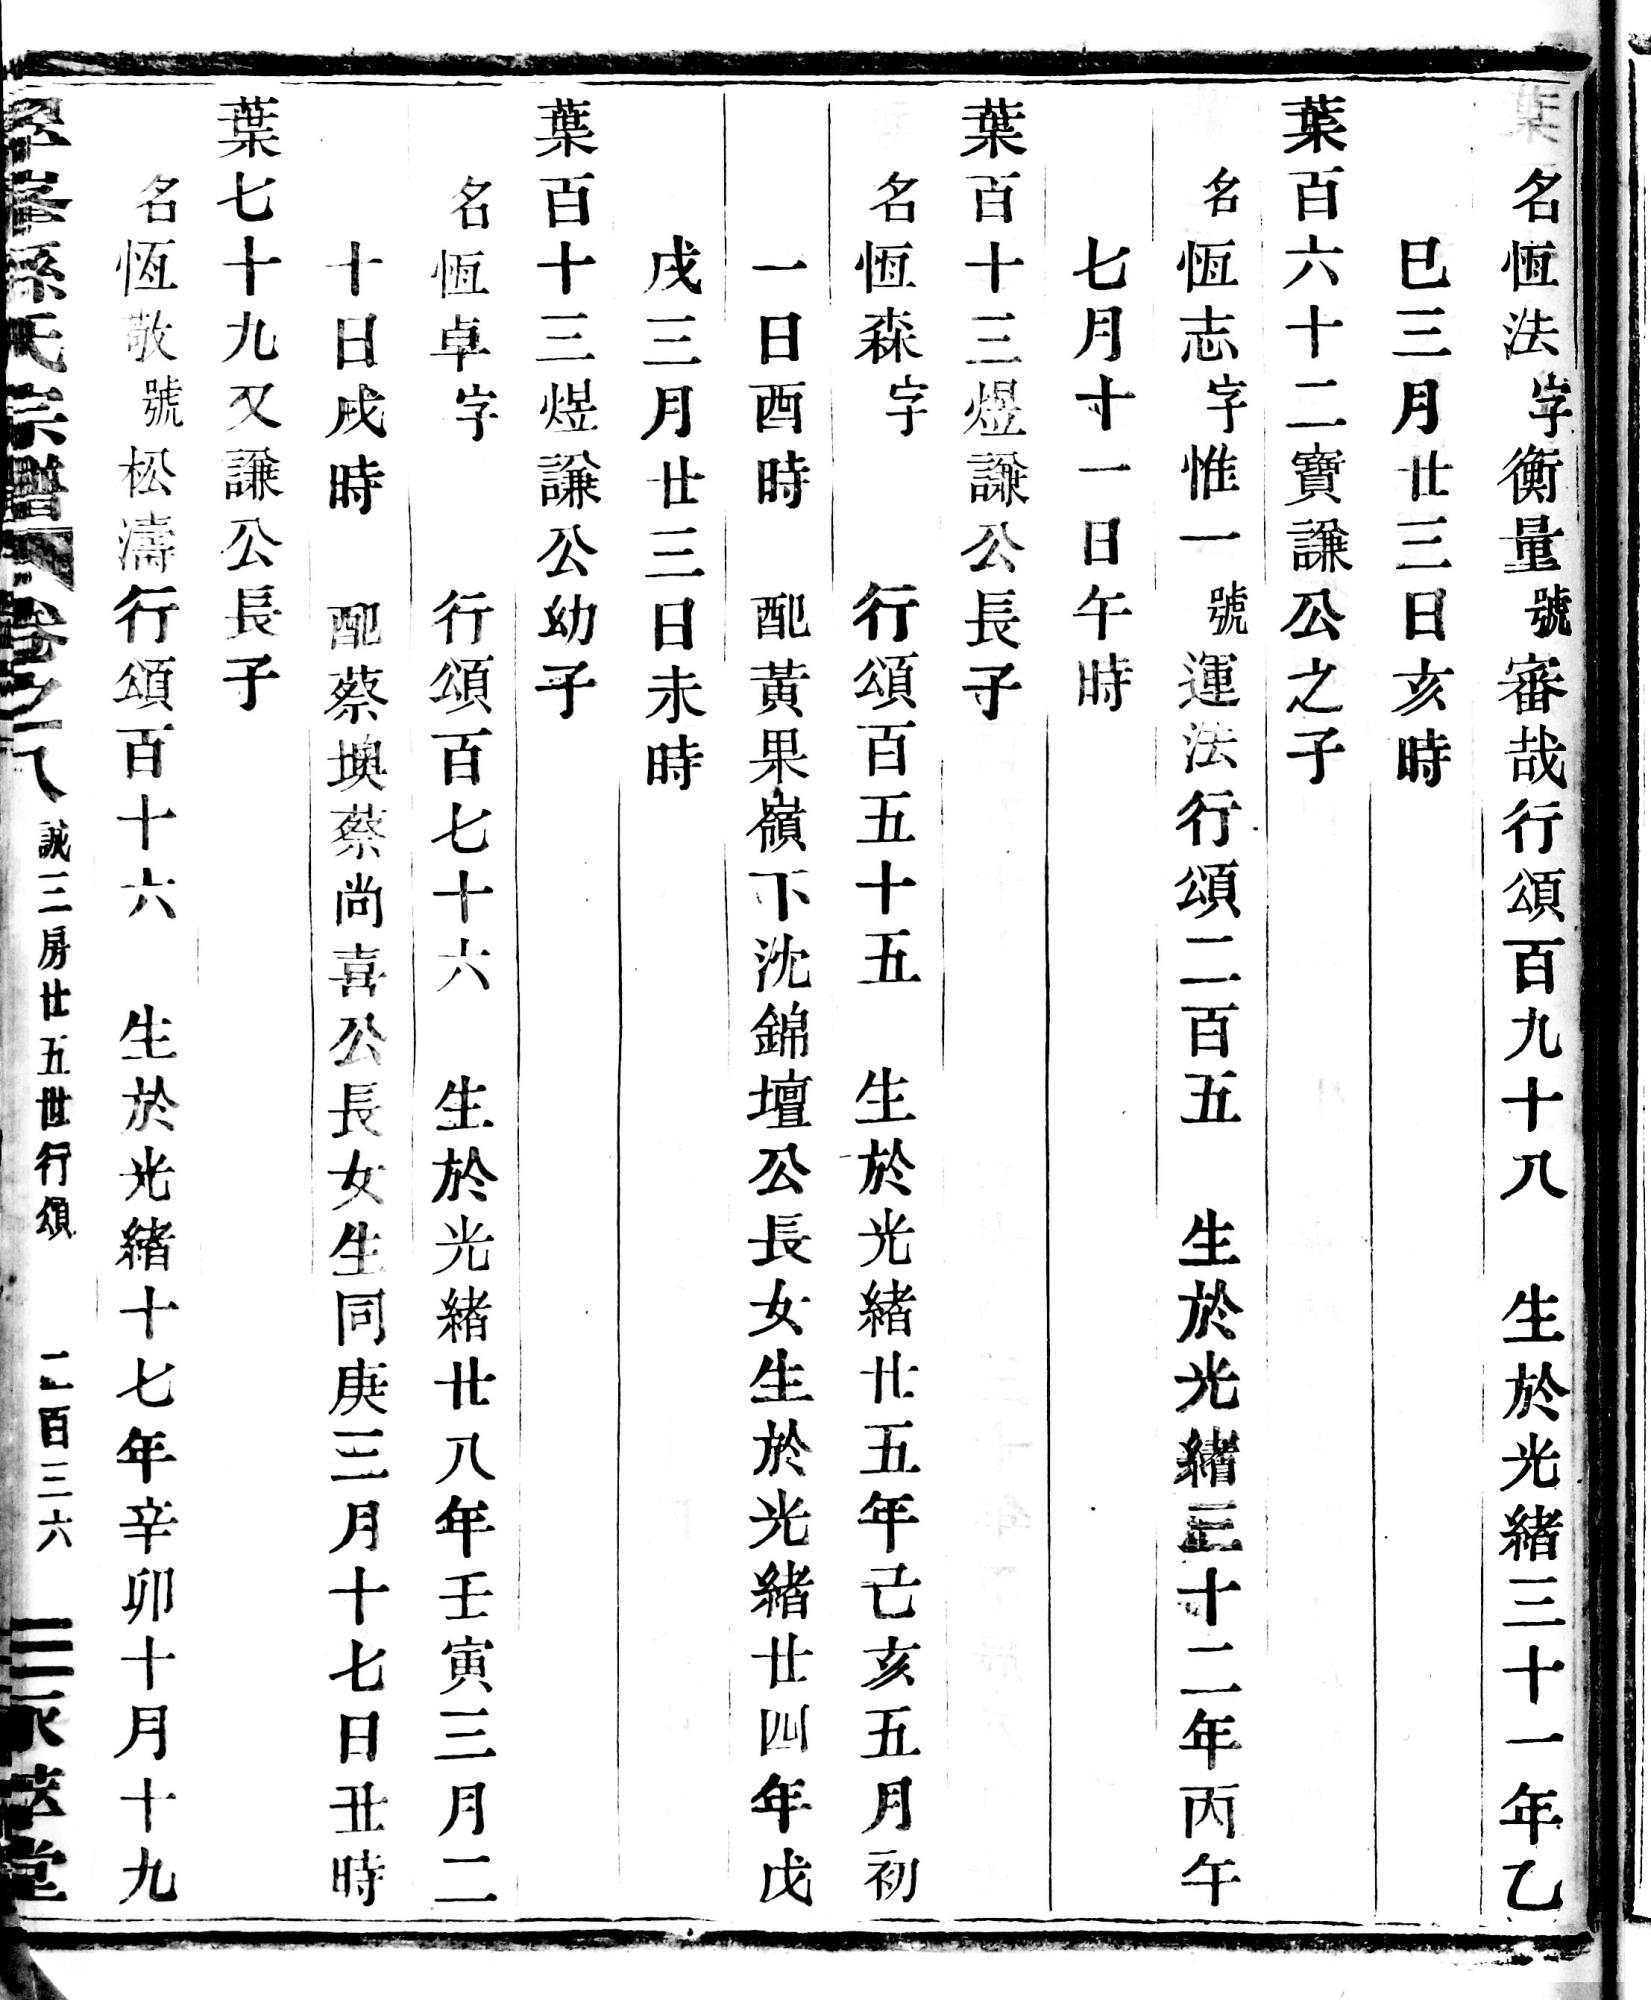 名恆法字衡量號審哉行頌百九十八　生於光緒三十一年乙
巳三月廿三日亥時
葉百六十二寶謙公之子
名恆志字惟一號運法行頌二百五　生於光緒三十二年丙午
七月十一日午時
葉百十三煜謙公長子
名恆森字　行頌百五十五　生於光緒廿五年己亥五月初
一日酉時　配黃果嶺下沈錦壇公長女生於光緒廿四年戊
戌三月廿三日未時
葉百十三煜謙公幼子
名恆卓字　行頌百七十六　生於光緒廿八年壬寅三月二
十日戌時　配蔡墺蔡尚喜公長女生同庚三月十七日丑時
葉七十九又謙公長子
名恆敬號松濤行頌百十六　生於光緒十七年辛卯十月十九
孫氏宗譜　卷之八　誠三房廿五世行頌　二百三六　堂